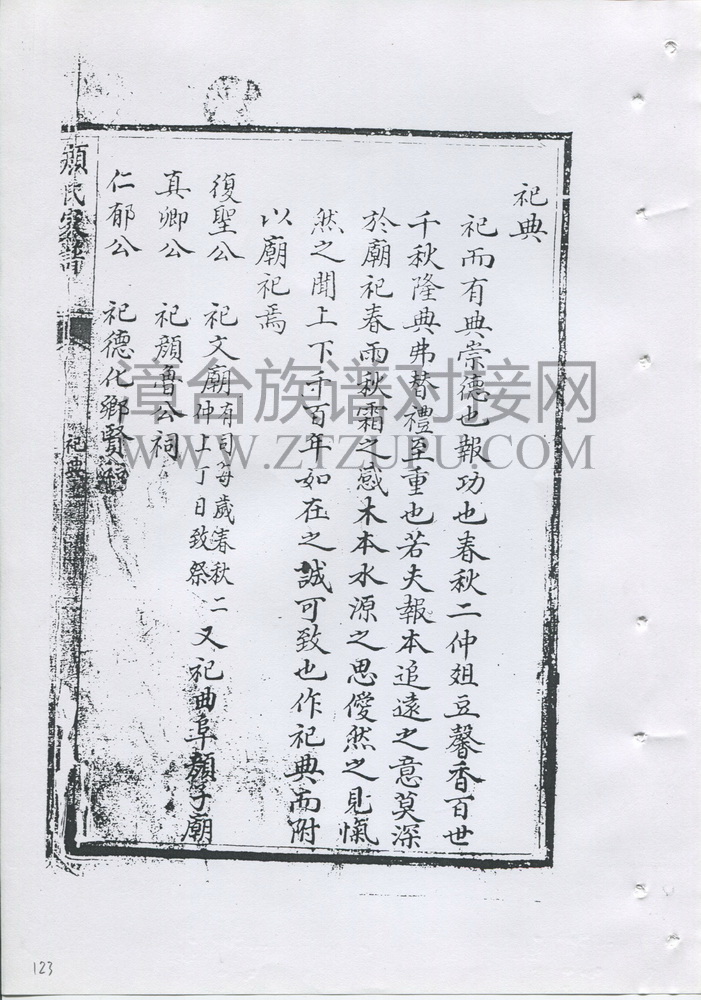 祀典
祀而有典崇德也報功也春秋二仲姐豆馨香百世
千秋隆典弗替禮至重也若夫報本追遠之意莫深
於廟祀春雨秋霜之感木本水源之思僾然之見愾
然之聞上下千百年如在之誠可致也作祀典而附
以廟祀焉
復聖公 祀文廟有司每歲春秋二仲上丁日致祭 又祀曲阜顏子廟
真卿公 祀顏魯公祠
仁郁公 祀德化鄉賢祠
顏氏家譜 祀典
漳台族谱对接网
WWW.ZTZUPU.COM
123